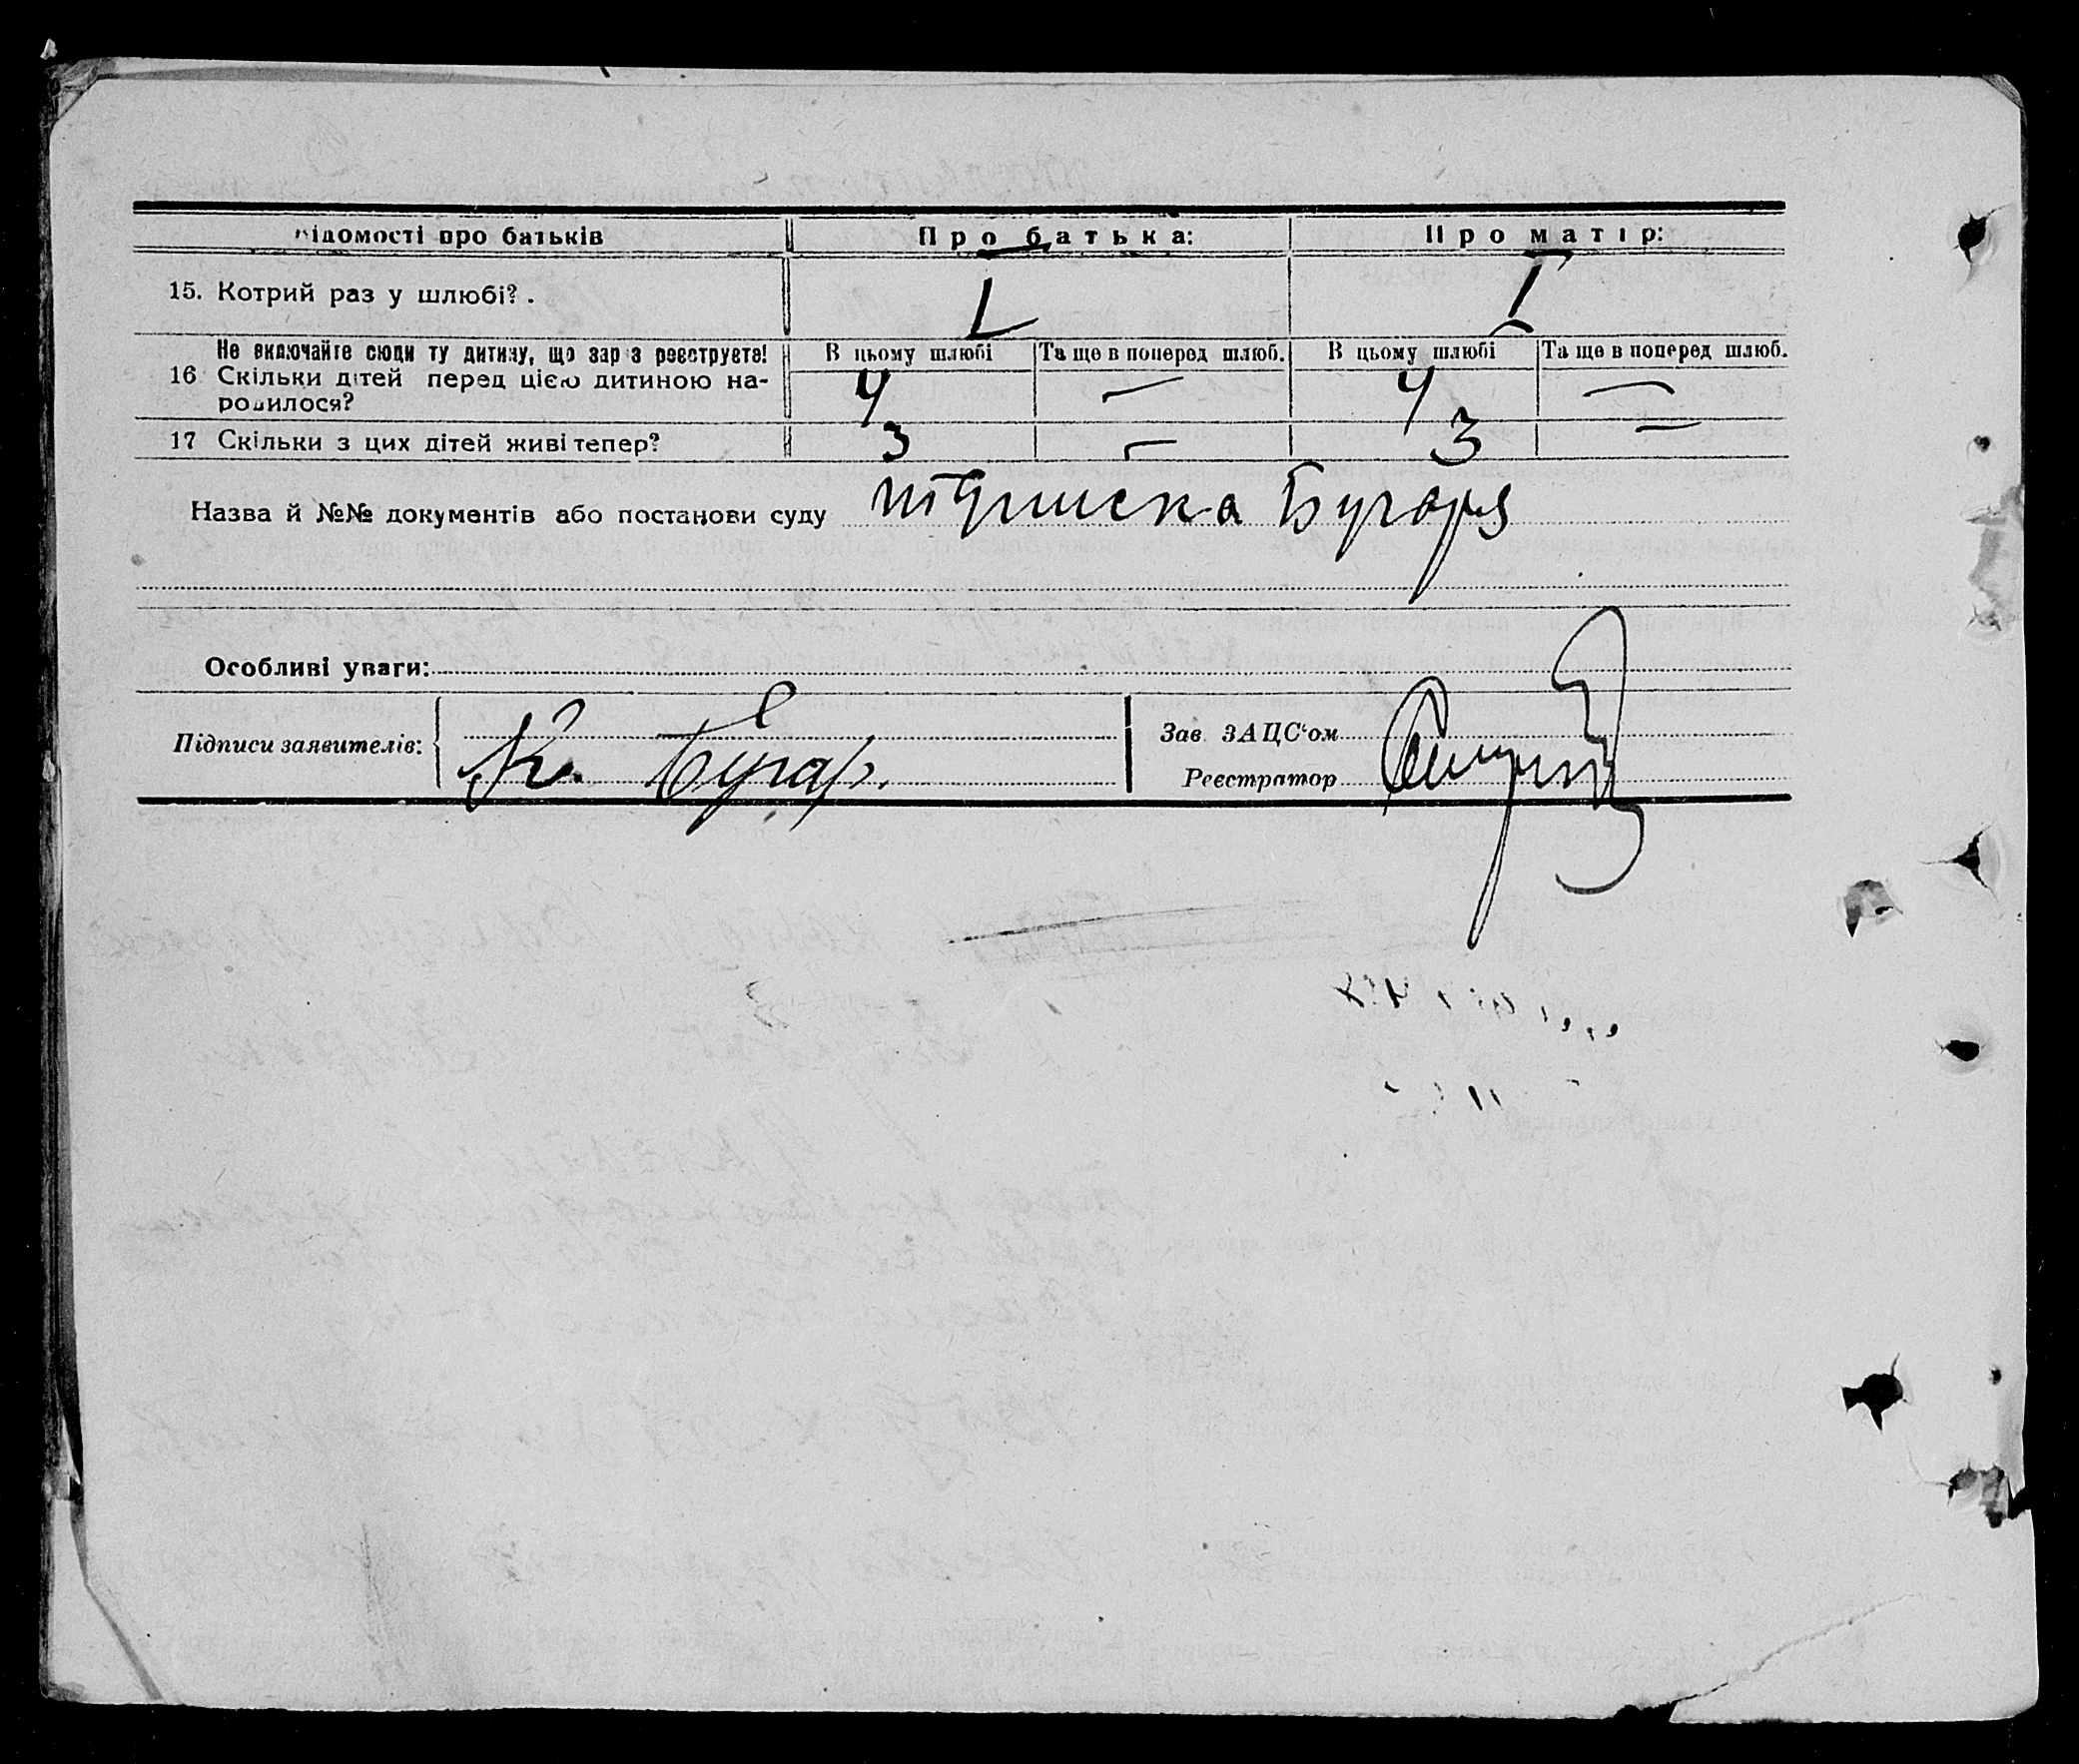 Відомості про батьків Про батька: Про матір:
15. Котрий раз у шлюбі? . I I
Не включайте сюди ту дитину, що зараз реєструєте! В цьому шлюбі Та ще в поперед шлюб. В цьому шлюбі Та ще в поперед шлюб.
16 Скільки дітей перед цією дитиною на-
родилося? 4 — 4 —
17 Скільки з цих дітей живі тепер? 3 — 3 —
Назва й №№ документів або постанови суду підписка Бугаря
Особливі уваги:
Підписи заявителів: К. Бугар.
Зав. ЗАЦС'ом
Реєстратор